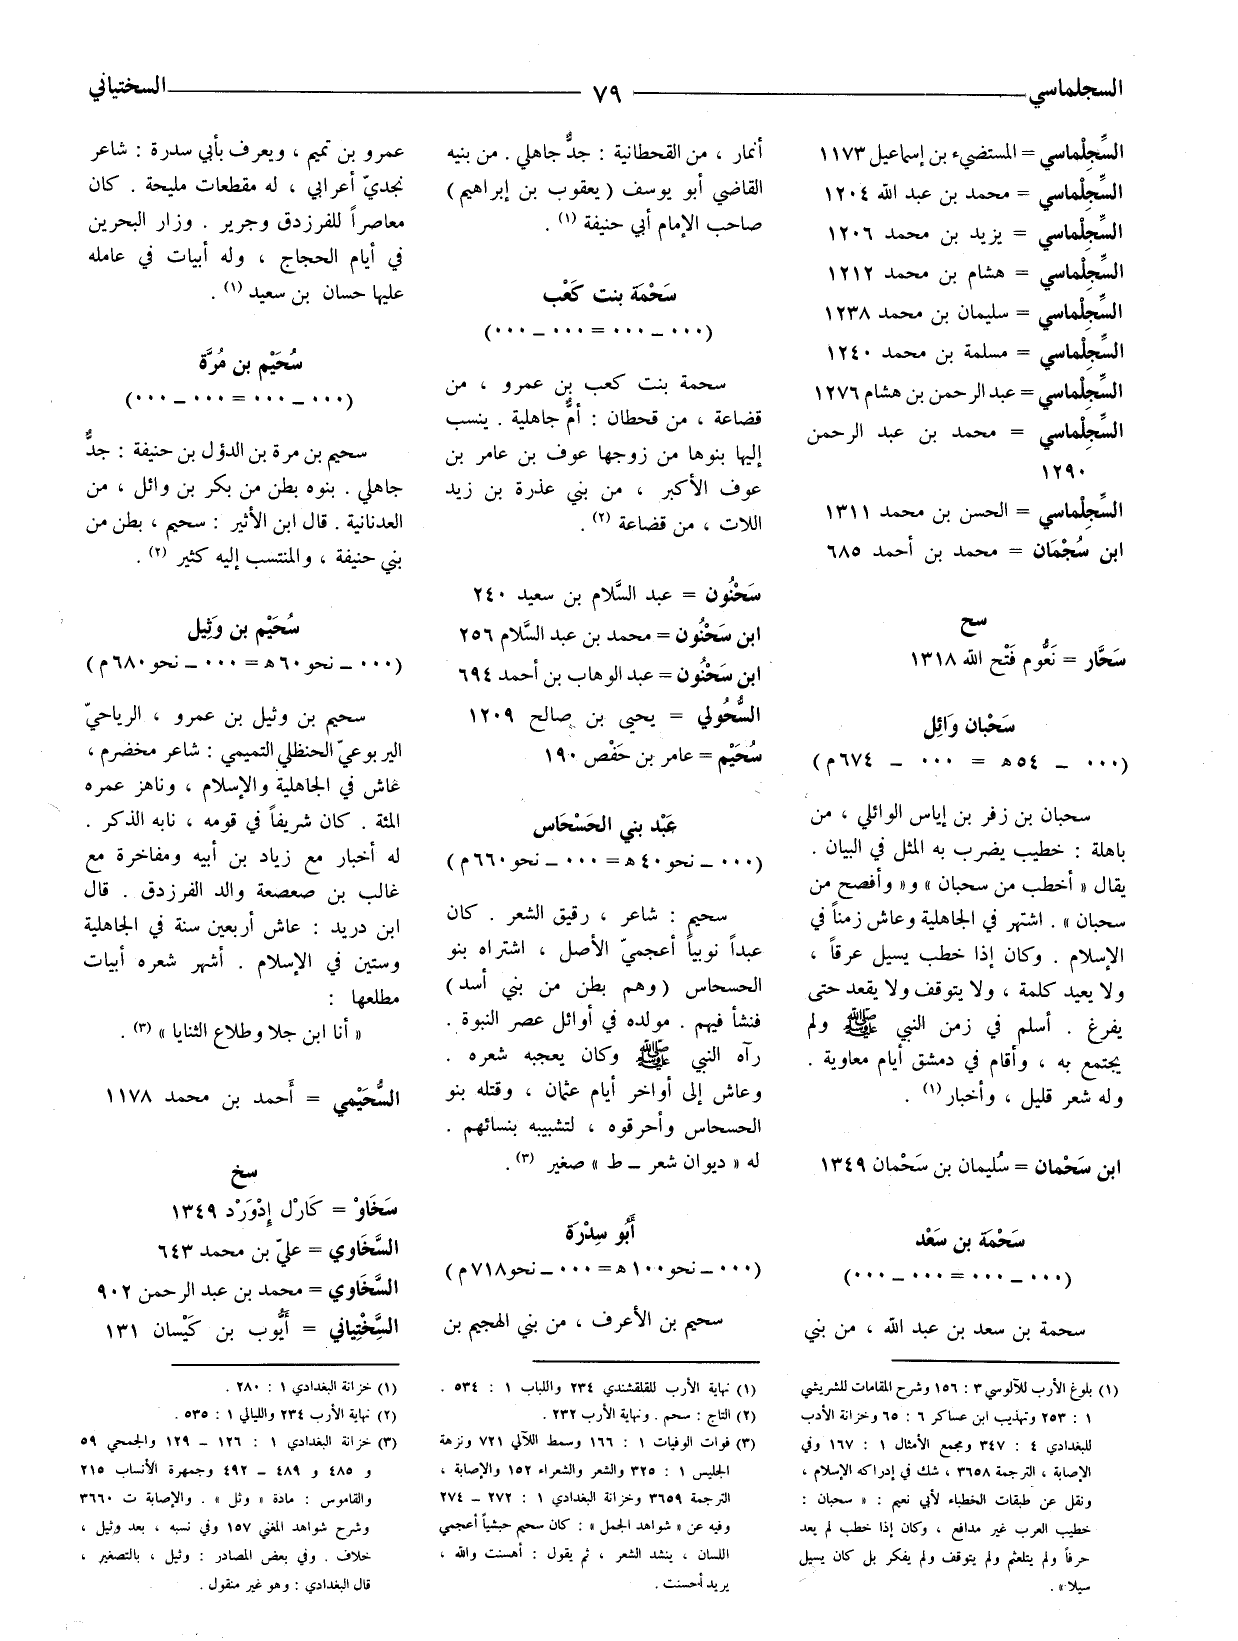 السجلماسي ـــ ٧٩ ـــ السختياني
السِّجِلْماسي = المستضيء بن إسماعيل ١١٧٣
السِّجِلْماسي = محمد بن عبد الله ١٢٠٤
السِّجِلْماسي = يزيد بن محمد ١٢٠٦
السِّجِلْماسي = هشام بن محمد ١٢١٢
السِّجِلْماسي = سليمان بن محمد ١٢٣٨
السِّجِلْماسي = مسلمة بن محمد ١٢٤٠
السِّجِلْماسي = عبد الرحمن بن هشام ١٢٧٦
السِّجِلْماسي = محمد بن عبد الرحمن
١٢٩٠
السِّجِلْماسي = الحسن بن محمد ١٣١١
ابن سُجْمَان = محمد بن أحمد ٦٨٥
سح
سَحَّار = نَعُّوم فَتْح الله ١٣١٨
سَحْبان وَائِل
(٠٠٠ ـ ٥٤ه = ٠٠٠ ـ ٦٧٤م)
سحبان بن زفر بن إياس الوائلي ، من
باهلة : خطيب يضرب به المثل في البيان .
يقال « أخطب من سحبان » و« وأفصح من
سحبان » . اشتهر في الجاهلية وعاش زمناً في
الإسلام . وكان إذا خطب يسيل عرقاً ،
ولا يعيد كلمة ، ولا يتوقف ولا يقعد حتى
يفرغ . أسلم في زمن النبي ﷺ ولم
يجتمع به ، وأقام في دمشق أيام معاوية .
وله شعر قليل ، وأخبار (١) .
ابن سَحْمان = سُليمان بن سَحْمان ١٣٤٩
سَحْمَة بن سَعْد
(٠٠٠ ـ ٠٠٠ = ٠٠٠ ـ ٠٠٠)
سحمة بن سعد بن عبد الله ، من بني
(١) بلوغ الأرب للآلوسي ٣ : ١٥٦ وشرح المقامات للشريشي
١ : ٢٥٣ وتهذيب ابن عساكر ٦ : ٦٥ وخزانة الأدب
للبغدادي ٤ : ٣٤٧ ومجمع الأمثال ١ : ١٦٧ وفي
الإصابة ، الترجمة ٣٦٥٨ ، شك في إدراكه الإسلام ،
ونقل عن طبقات الخطباء لأبي نعيم : « سحبان :
خطيب العرب غير مدافع ، وكان إذا خطب لم يعد
حرفاً ولم يتلعثم ولم يتوقف ولم يفكر بل كان يسيل
سيلا » .
أنمار ، من القحطانية : جدٌّ جاهلي . من بنيه
القاضي أبو يوسف ( يعقوب بن إبراهيم )
صاحب الإمام أبي حنيفة (١) .
سَحْمَة بنت كَعْب
(٠٠٠ ـ ٠٠٠ = ٠٠٠ ـ ٠٠٠)
سحمة بنت كعب بن عمرو ، من
قضاعة ، من قحطان : أمٌّ جاهلية . ينسب
إليها بنوها من زوجها عوف بن عامر بن
عوف الأكبر ، من بني عذرة بن زيد
اللات ، من قضاعة (٢) .
سَحْنُون = عبد السَّلام بن سعيد ٢٤٠
ابن سَحْنُون = محمد بن عبد السَّلام ٢٥٦
ابن سَحْنُون = عبد الوهاب بن أحمد ٦٩٤
السُّحُولي = يحيى بن صالح ١٢٠٩
سُحَيْم = عامر بن حَفْص ١٩٠
عَبْد بني الحَسْحَاس
(٠٠٠ ـ نحو ٤٠ ه = ٠٠٠ ـ نحو ٦٦٠م)
سحيم : شاعر ، رقيق الشعر . كان
عبداً نوبياً أعجميّ الأصل ، اشتراه بنو
الحسحاس ( وهم بطن من بني أسد )
فنشأ فيهم . مولده في أوائل عصر النبوة .
رآه النبي ﷺ وكان يعجبه شعره .
وعاش إلى أواخر أيام عثمان ، وقتله بنو
الحسحاس وأحرقوه ، لتشبيبه بنسائهم .
له « ديوان شعر ـ ط » صغير (٣) .
أَبُو سِدْرَة
(٠٠٠ ـ نحو ١٠٠ ه = ٠٠٠ ـ نحو ٧١٨م)
سحيم بن الأعرف ، من بني الهجيم بن
(١) نهاية الأرب للقلقشندي ٢٣٤ واللباب ١ : ٥٣٤ .
(٢) التاج : سحم . ونهاية الأرب ٢٣٢ .
(٣) فوات الوفيات ١ : ١٦٦ وسمط اللآلي ٧٢١ ونزهة
الجليس ١ : ٣٢٥ والشعر والشعراء ١٥٢ والإصابة ،
الترجمة ٣٦٥٩ وخزانة البغدادي ١ : ٢٧٢ ـ ٢٧٤
وفيه عن « شواهد الجمل » : كان سحيم حبشياً أعجمي
اللسان ، ينشد الشعر ، ثم يقول : أهسنت والله ،
يريد أحسنت .
عمرو بن تميم ، ويعرف بأبي سدرة : شاعر
نجديّ أعرابي ، له مقطعات مليحة . كان
معاصراً للفرزدق وجرير . وزار البحرين
في أيام الحجاج ، وله أبيات في عامله
عليها حسان بن سعيد (١) .
سُحَيْم بن مُرَّة
(٠٠٠ ـ ٠٠٠ = ٠٠٠ ـ ٠٠٠)
سحيم بن مرة بن الدؤل بن حنيفة : جدٌّ
جاهلي . بنوه بطن من بكر بن وائل ، من
العدنانية . قال ابن الأثير : سحيم ، بطن من
بني حنيفة ، والمنتسب إليه كثير (٢) .
سُحَيْم بن وَثِيل
(٠٠٠ ـ نحو ٦٠ ه = ٠٠٠ ـ نحو ٦٨٠م)
سحيم بن وثيل بن عمرو ، الرياحيّ
اليربوعيّ الحنظلي التميمي : شاعر مخضرم ،
عاش في الجاهلية والإسلام ، وناهز عمره
المئة . كان شريفاً في قومه ، نابه الذكر .
له أخبار مع زياد بن أبيه ومفاخرة مع
غالب بن صعصعة والد الفرزدق . قال
ابن دريد : عاش أربعين سنة في الجاهلية
وستين في الإسلام . أشهر شعره أبيات
مطلعها :
« أنا ابن جلا وطلاع الثنايا » (٣) .
السُّحَيْمي = أَحمد بن محمد ١١٧٨
سخ
سَخَاوْ = كَارْل إِدْوَرْد ١٣٤٩
السَّخَاوي = عليّ بن محمد ٦٤٣
السَّخَاوي = محمد بن عبد الرحمن ٩٠٢
السَّخْتِياني = أَيُّوب بن كَيْسان ١٣١
(١) خزانة البغدادي ١ : ٢٨٠ .
(٢) نهاية الأرب ٢٣٤ والليالي ١ : ٥٣٥ .
(٣) خزانة البغدادي ١ : ١٢٦ ـ ١٢٩ والجمحي ٥٩
و ٤٨٥ و ٤٨٩ ـ ٤٩٢ وجمهرة الأنساب ٢١٥
والقاموس : مادة « وثل » . والإصابة ت ٣٦٦٠
وشرح شواهد المغني ١٥٧ وفي نسبه ، بعد وثيل ،
خلاف . وفي بعض المصادر : وثيل ، بالتصغير ،
قال البغدادي : وهو غير منقول .